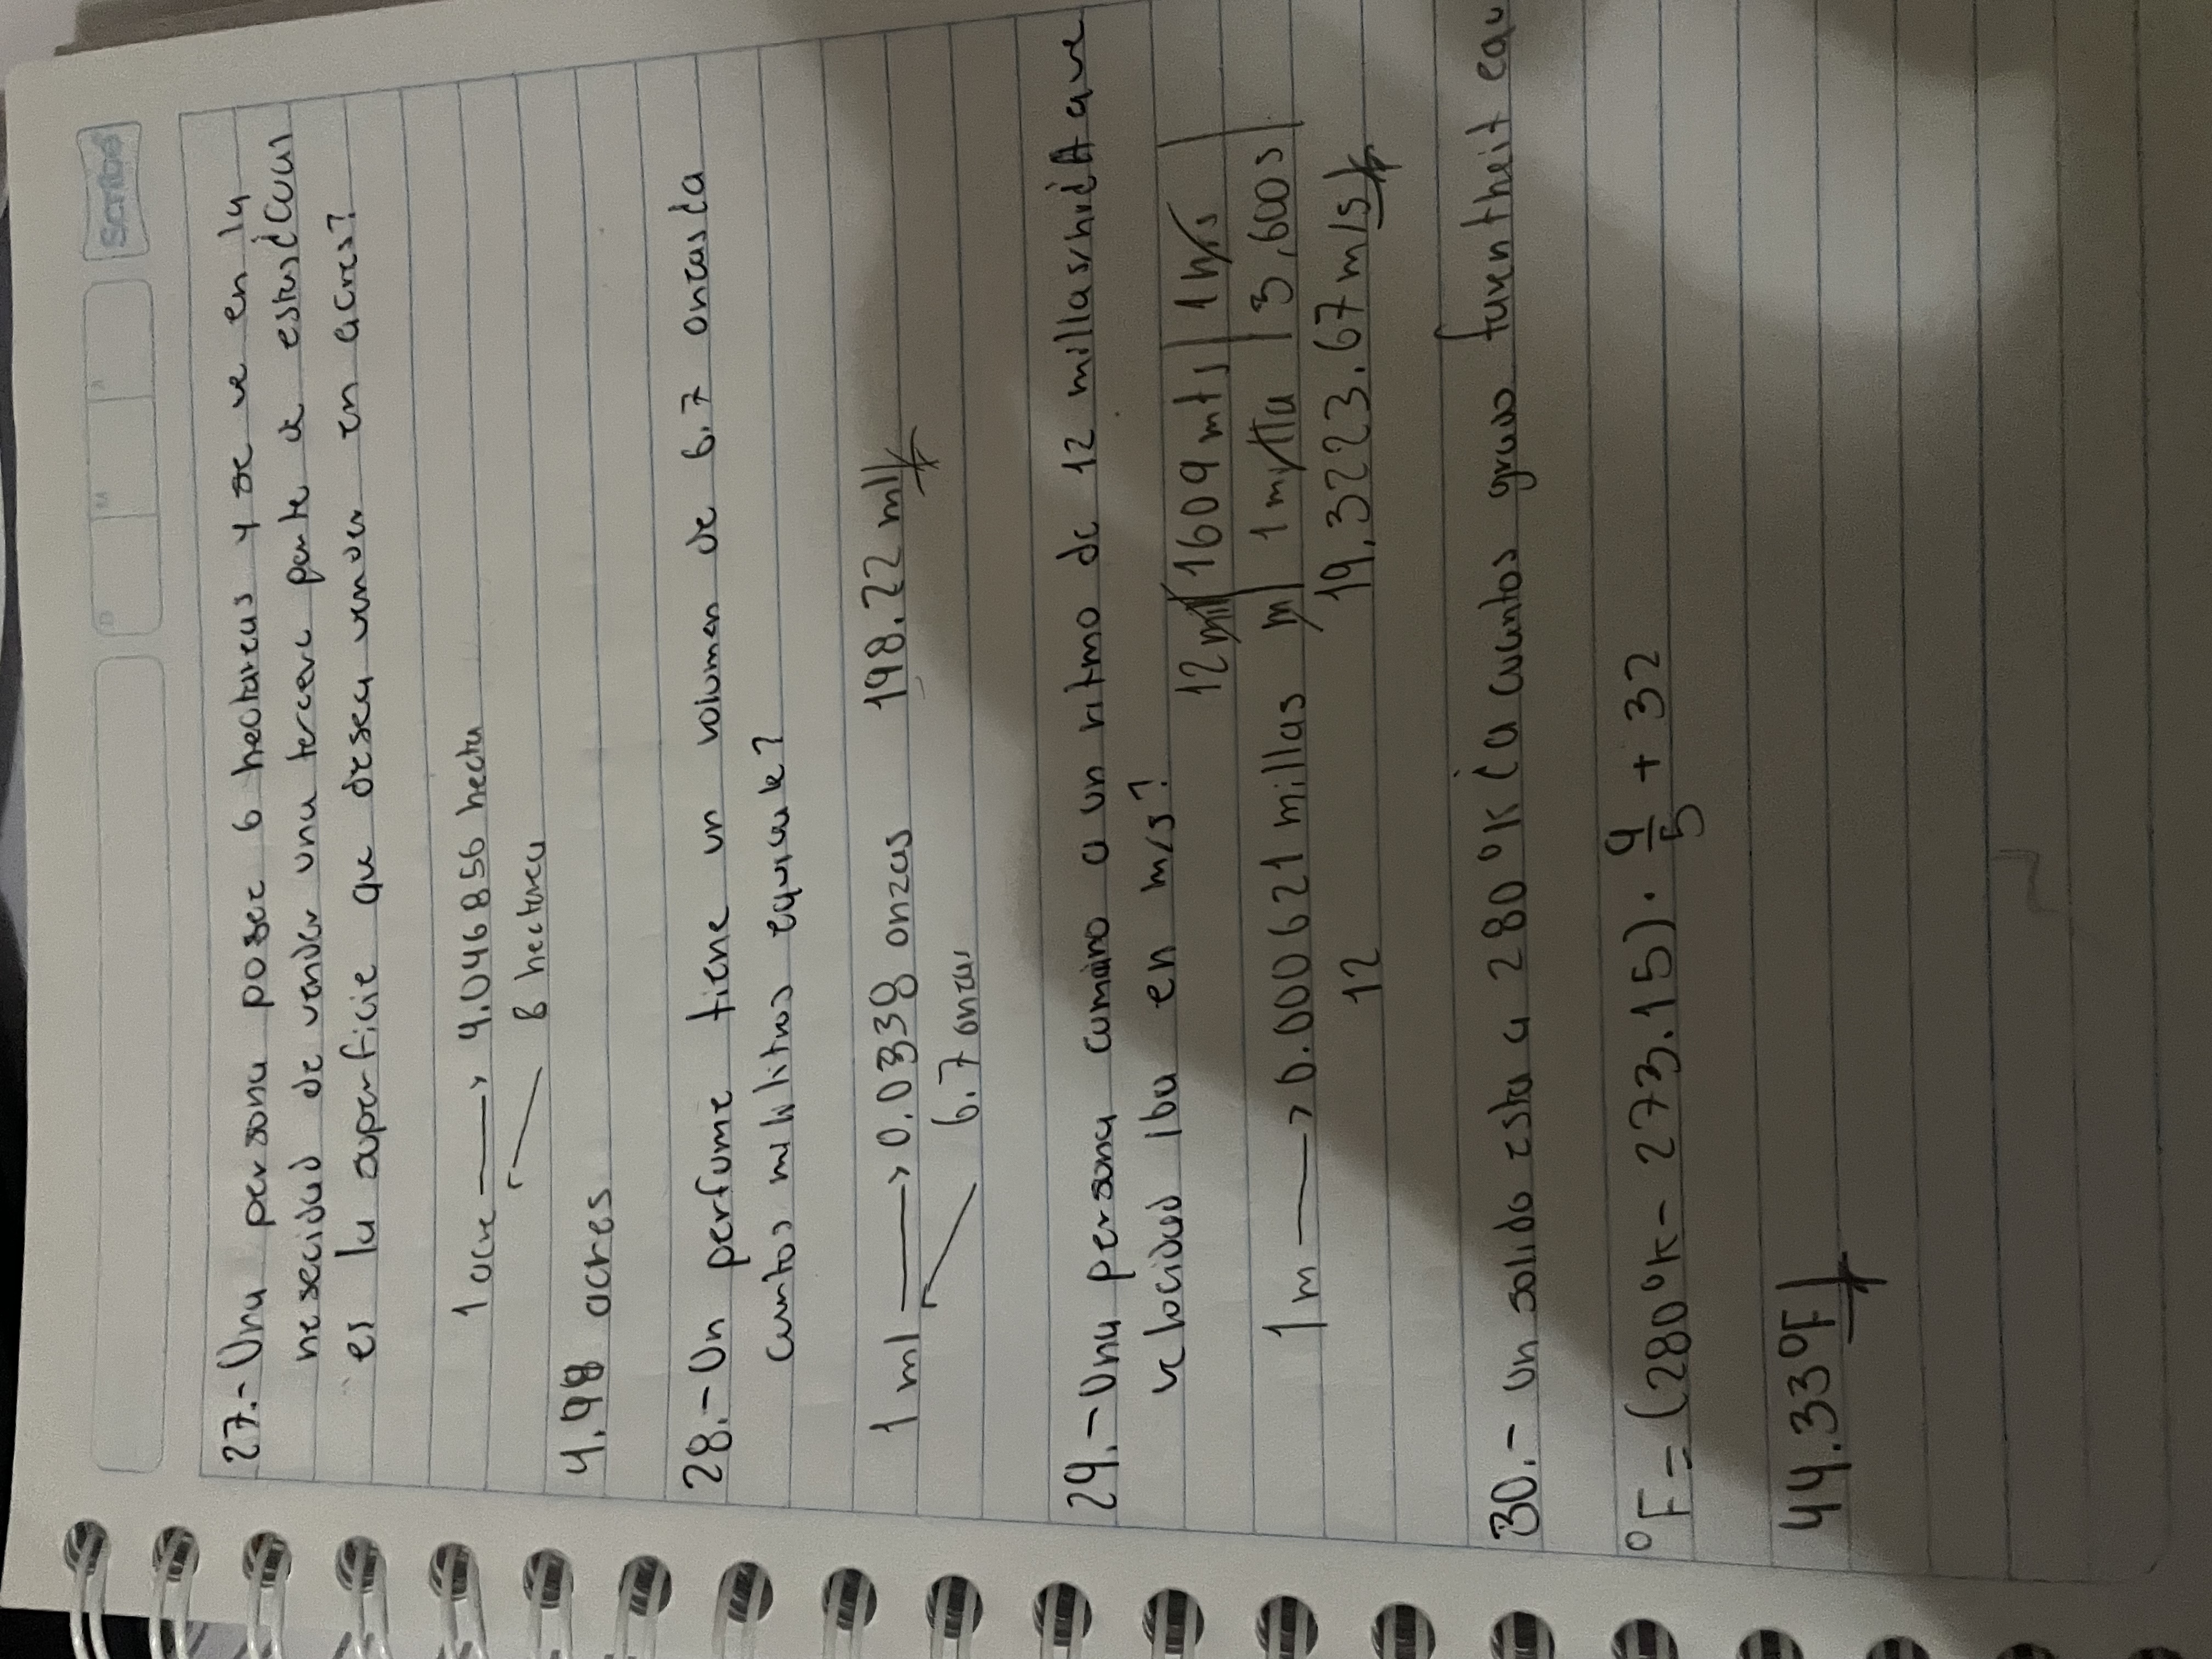 Scribe
D M A
27.- Una persona posee 6 hectareas y se ve en la
nesecidad de vender una tercera parte de estas ¿Cual
es la superficie que desea vender en acres?
1 acre → 4.046856 hecta
8 hectarea
4.98 acres
28.- Un perfume tiene un volumen de 6.7 onzas ¿a
cuantos mililitros equivale?
1 ml → 0.0338 onzas 198.22 ml
6.7 onzas
29.- Una persona camino a un ritmo de 12 millas/hr ¿A que
velocidad iba en m/s?
12 mill | 1609 mts | 1 hrs
1 m → 0.000621 millas m | 1 milla | 3,600 s
12 19,3223.67 m/s
30.- Un solido esta a 280°K ¿a cuantos grados farentheit equ
°F = (280°K - 273.15) · 9/5 + 32
44.33°F